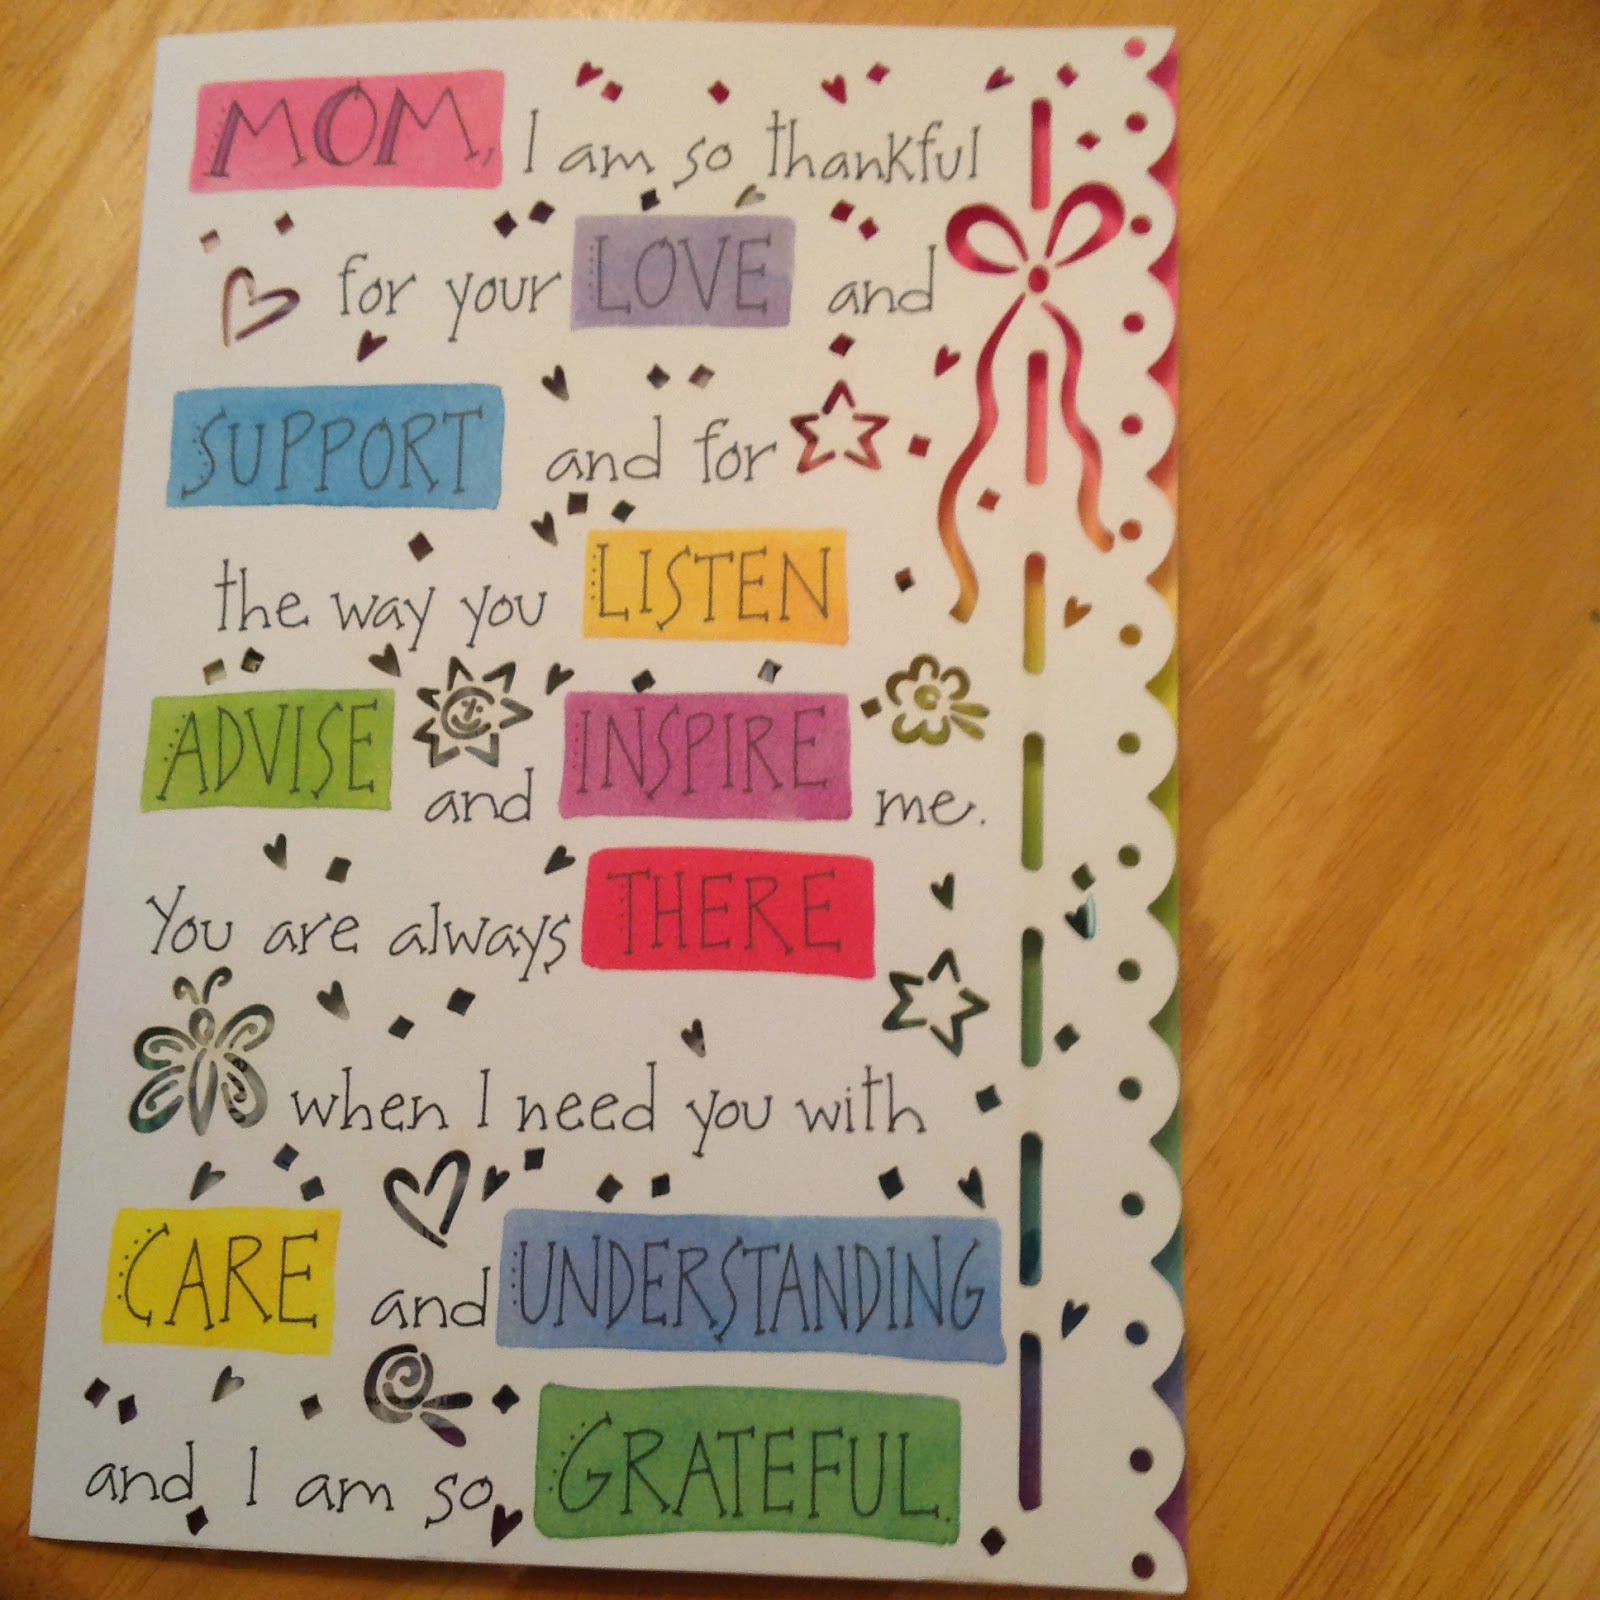 MOM, I am so thankful
for your LOVE and
SUPPORT and for
the way you LISTEN
ADVISE and INSPIRE me.
You are always THERE
when I need you with
CARE and UNDERSTANDING
and I am so GRATEFUL.